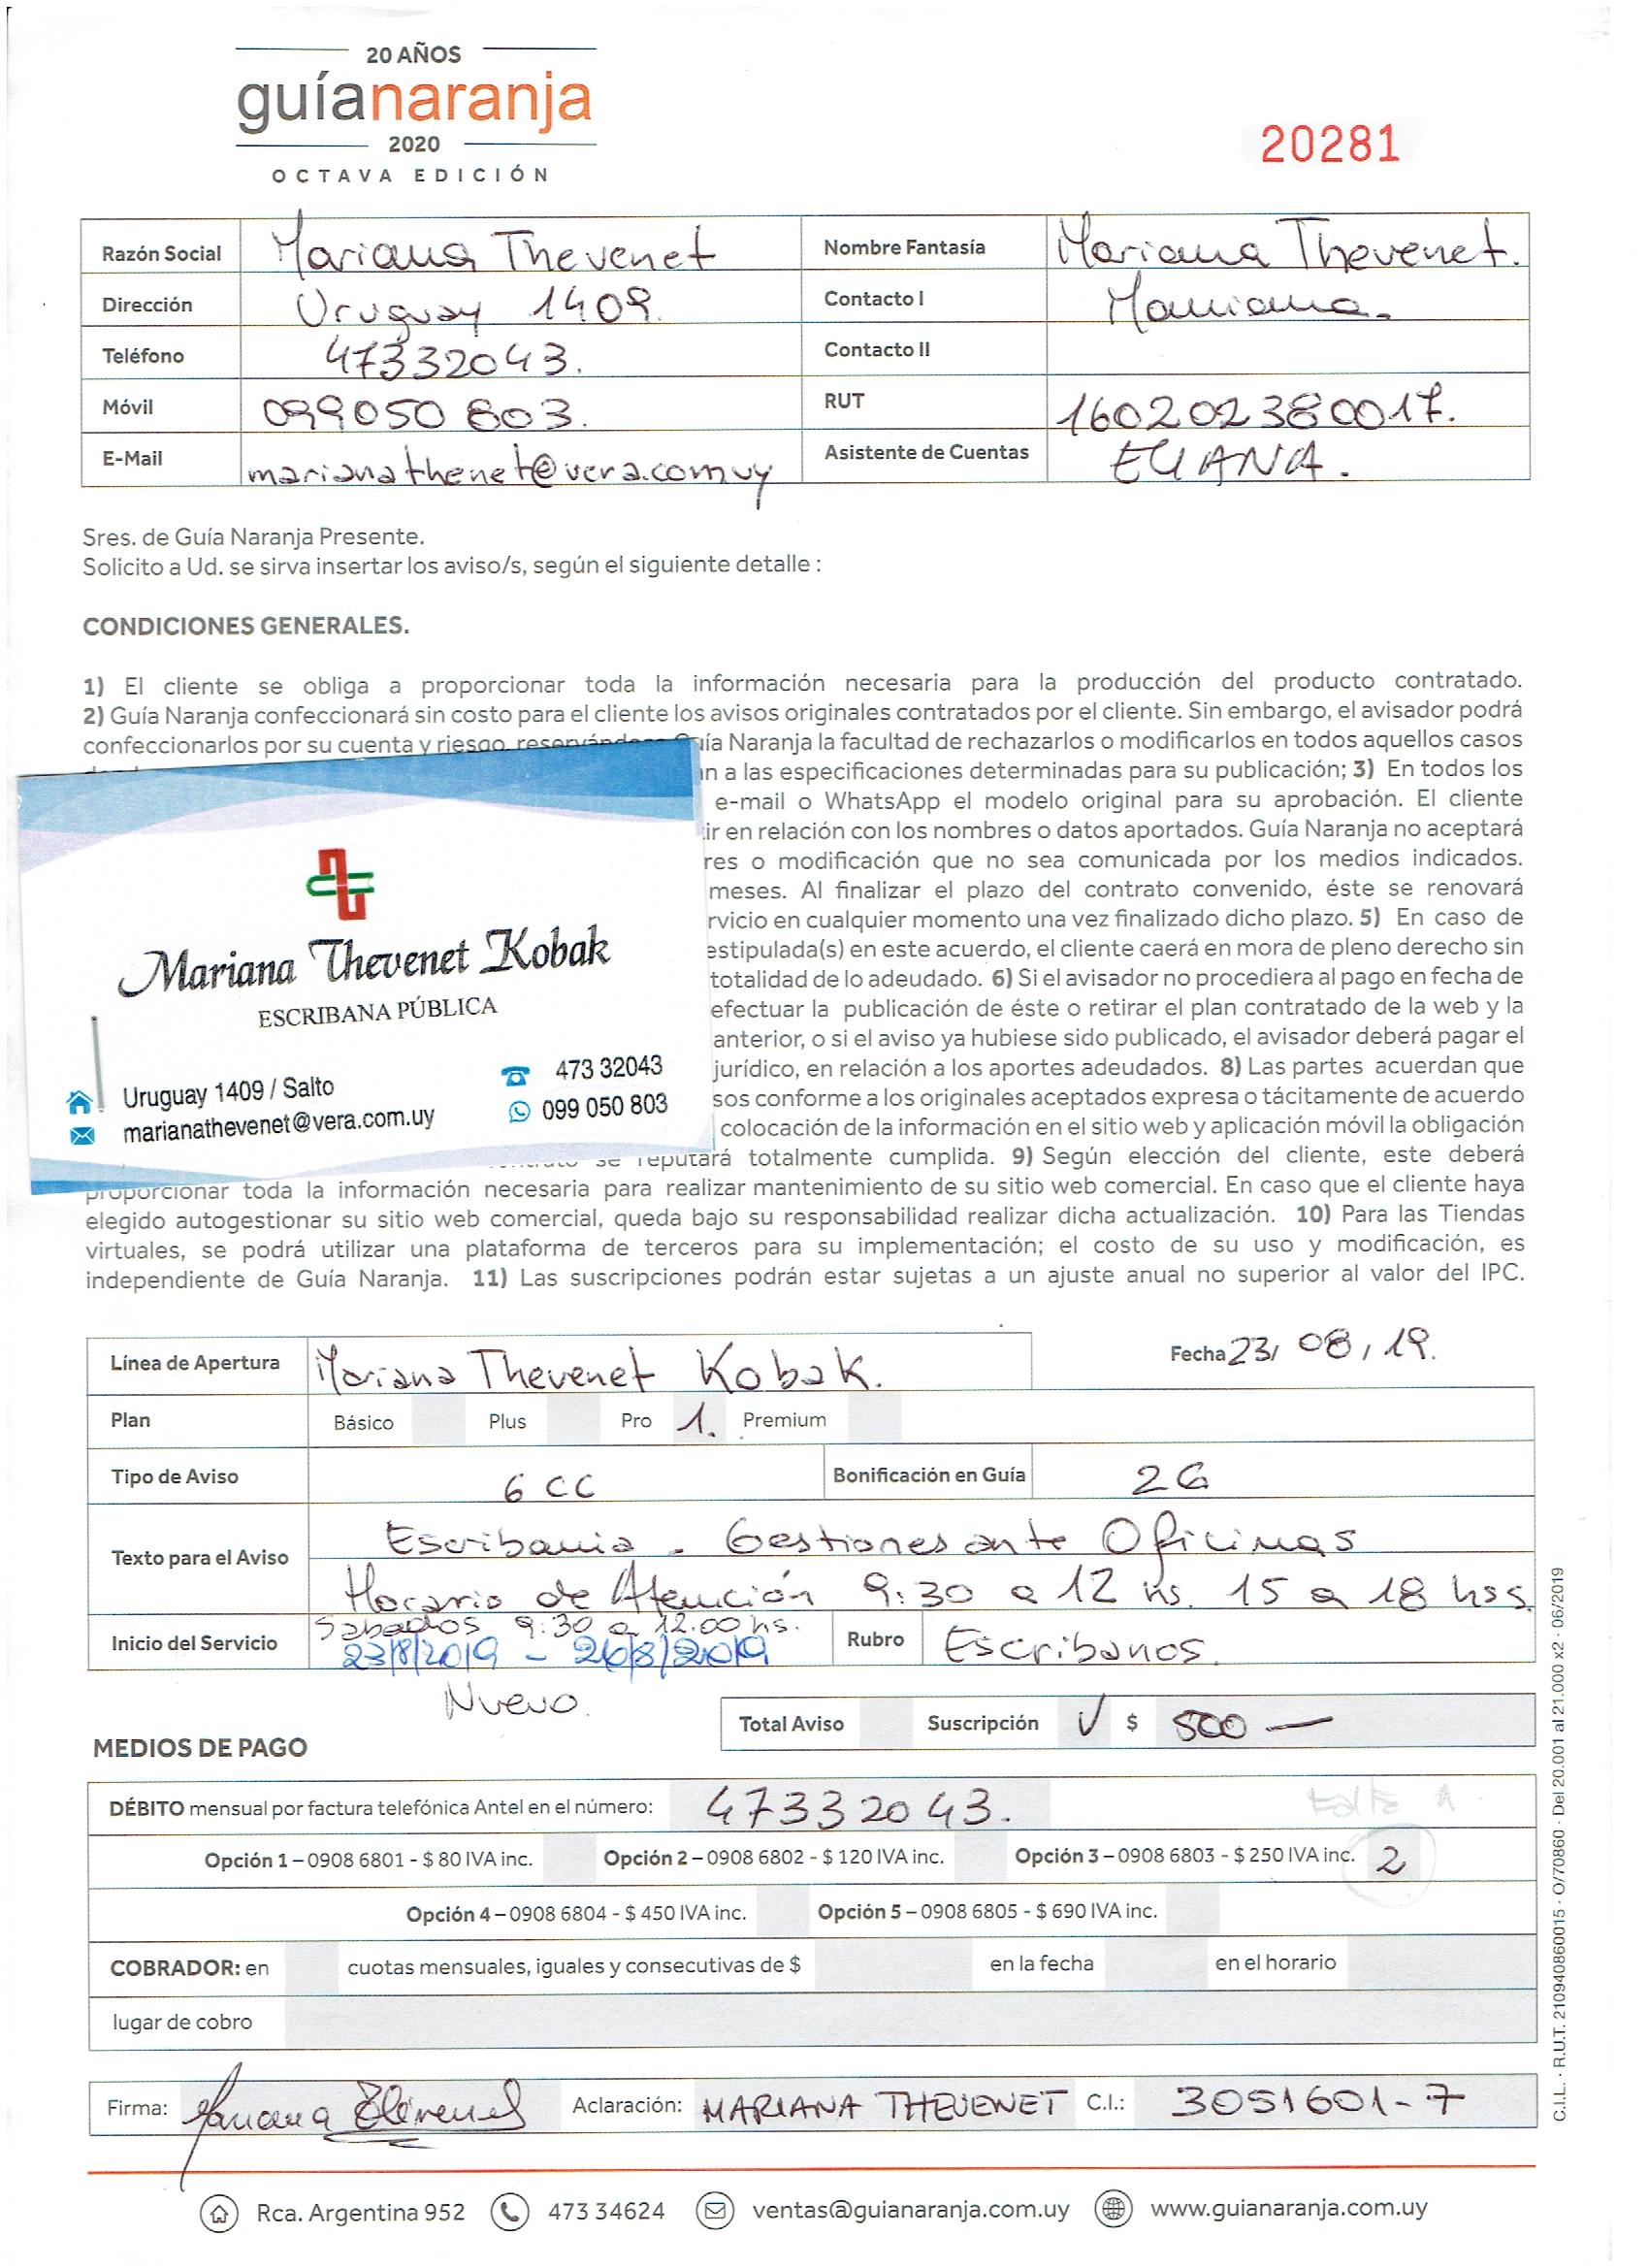 20 AÑOS
guíanaranja
2020
OCTAVA EDICIÓN
20281
Razón Social Mariana Thevenet Nombre Fantasía Mariana Thevenet.
Dirección Uruguay 1409. Contacto I Mariana.
Teléfono 47332043. Contacto II
Móvil 099050 803. RUT 160202380017.
E-Mail marianathenet@vera.com.uy Asistente de Cuentas ELIANA.
Sres. de Guía Naranja Presente.
Solicito a Ud. se sirva insertar los aviso/s, según el siguiente detalle :
CONDICIONES GENERALES.
1) El cliente se obliga a proporcionar toda la información necesaria para la producción del producto contratado.
2) Guía Naranja confeccionará sin costo para el cliente los avisos originales contratados por el cliente. Sin embargo, el avisador podrá
confeccionarlos por su cuenta y riesgo, reservándose Guía Naranja la facultad de rechazarlos o modificarlos en todos aquellos casos
a las especificaciones determinadas para su publicación; 3) En todos los
e-mail o WhatsApp el modelo original para su aprobación. El cliente
en relación con los nombres o datos aportados. Guía Naranja no aceptará
o modificación que no sea comunicada por los medios indicados.
meses. Al finalizar el plazo del contrato convenido, éste se renovará
rvicio en cualquier momento una vez finalizado dicho plazo. 5) En caso de
estipulada(s) en este acuerdo, el cliente caerá en mora de pleno derecho sin
totalidad de lo adeudado. 6) Si el avisador no procediera al pago en fecha de
efectuar la publicación de éste o retirar el plan contratado de la web y la
anterior, o si el aviso ya hubiese sido publicado, el avisador deberá pagar el
jurídico, en relación a los aportes adeudados. 8) Las partes acuerdan que
sos conforme a los originales aceptados expresa o tácitamente de acuerdo
colocación de la información en el sitio web y aplicación móvil la obligación
se reputará totalmente cumplida. 9) Según elección del cliente, este deberá
proporcionar toda la información necesaria para realizar mantenimiento de su sitio web comercial. En caso que el cliente haya
elegido autogestionar su sitio web comercial, queda bajo su responsabilidad realizar dicha actualización. 10) Para las Tiendas
virtuales, se podrá utilizar una plataforma de terceros para su implementación; el costo de su uso y modificación, es
independiente de Guía Naranja. 11) Las suscripciones podrán estar sujetas a un ajuste anual no superior al valor del IPC.
Mariana Thevenet Kobak
ESCRIBANA PÚBLICA
Uruguay 1409 / Salto 473 32043
marianathevenet@vera.com.uy 099 050 803
Línea de Apertura Mariana Thevenet Kobak. Fecha 23/ 08 / 19.
Plan Básico Plus Pro 1. Premium
Tipo de Aviso 6 CC Bonificación en Guía 2G
Texto para el Aviso Escribania - Gestiones ante Oficinas
Horario de Atención 9:30 a 12 hs. 15 a 18 hss.
Sabados 9:30 a 12.00 hs.
Inicio del Servicio 23/8/2019 - 26/8/2019 Rubro Escribanos.
Nuevo.
Total Aviso Suscripción V $ 500 —
MEDIOS DE PAGO
DÉBITO mensual por factura telefónica Antel en el número: 47332043.
Opción 1 – 0908 6801 - $ 80 IVA inc. Opción 2 – 0908 6802 - $ 120 IVA inc. Opción 3 – 0908 6803 - $ 250 IVA inc. 2
Opción 4 – 0908 6804 - $ 450 IVA inc. Opción 5 – 0908 6805 - $ 690 IVA inc.
COBRADOR: en cuotas mensuales, iguales y consecutivas de $ en la fecha en el horario
lugar de cobro
Firma: Mariana Thevenet Aclaración: MARIANA THEVENET C.I.: 3051601-7
Rca. Argentina 952 473 34624 ventas@guianaranja.com.uy www.guianaranja.com.uy
C.I.L. · R.U.T. 210940860015 · O/70860 · Del 20.001 al 21.000 x2 · 06/2019